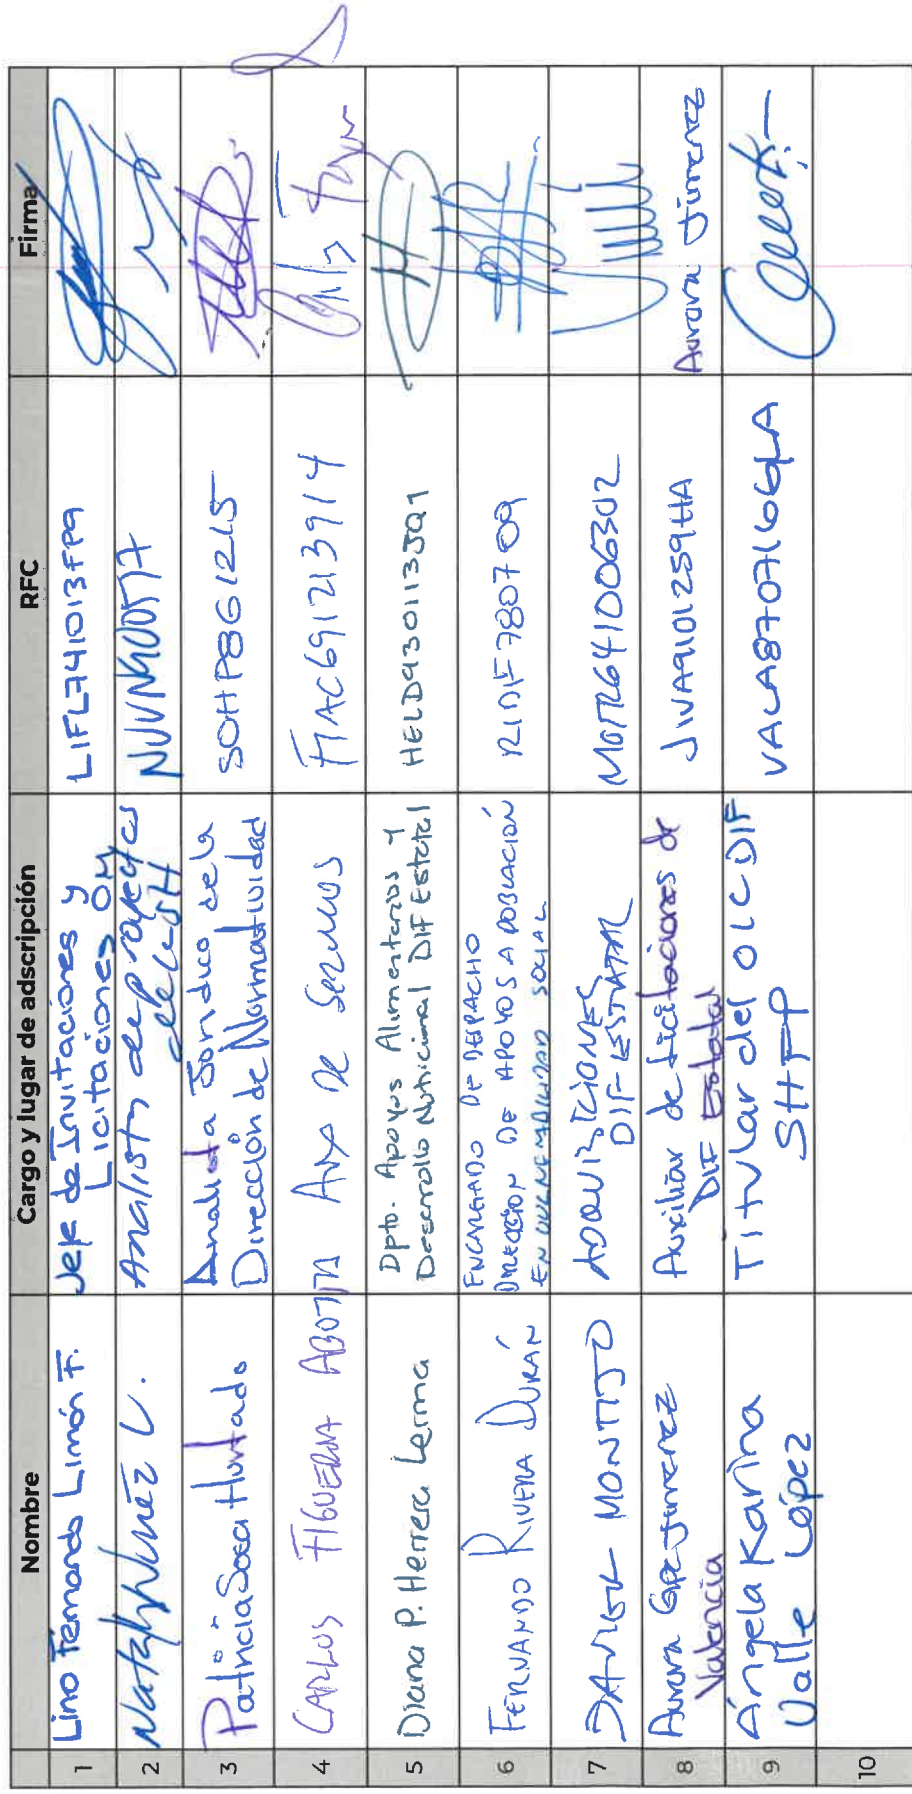 Nombre Cargo y lugar de adscripción RFC Firma
1 Lino Fernando Limón F. Jefe de Invitaciones y Licitaciones OM LIFL741013FP9
2 Nataly Nuñez V. Analista de proyectos
3 Patricia Sosa Hurtado Analista Jurídico de la Dirección de Normatividad SOHP861215
4 CARLOS FIGUEROA DE SERVICIOS FIAC691213914
5 Diana P. Herrera Lerma Dpto. Apoyos Alimentarios y Desarrollo Nutricional DIF Estatal HELD930113JQ1
6 FERNANDO RIVERA DURÁN ENCARGADO DE DESPACHO DIRECCIÓN DE APOYOS A POBLACIÓN EN VULNERABILIDAD SOCIAL RIDF780709
7 MONTIJO ADQUISICIONES DIF ESTATAL
8 Aurora Gpe Jimenez Valencia Auxiliar de Licitaciones de DIF Estatal JIVA9101259HA Aurora Jimenez
9 Ángela Karina Valle López Titular del OIC DIF SHFP VALA870716QLA
10